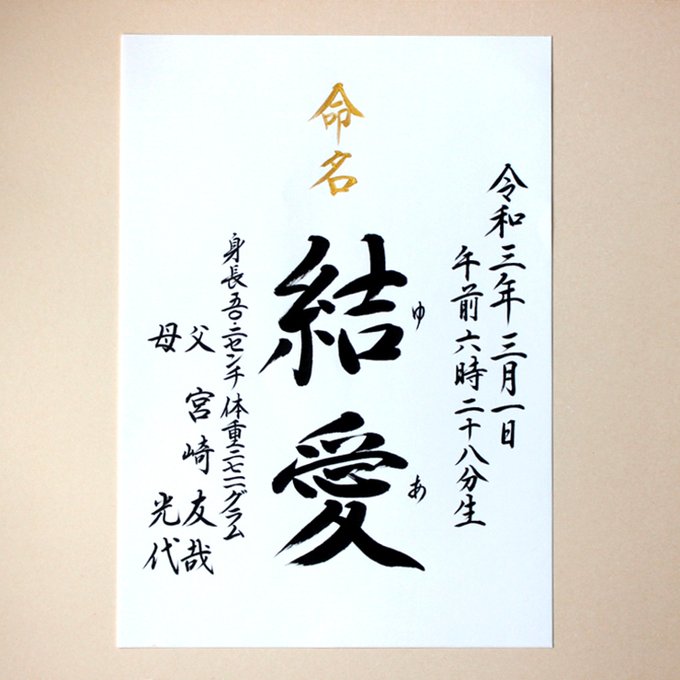 令和三年三月一日
午前六時二十八分生
命名
結愛
ゆあ
身長吾二センチ体重二七二一グラム
父 宮崎 友哉
母 光代